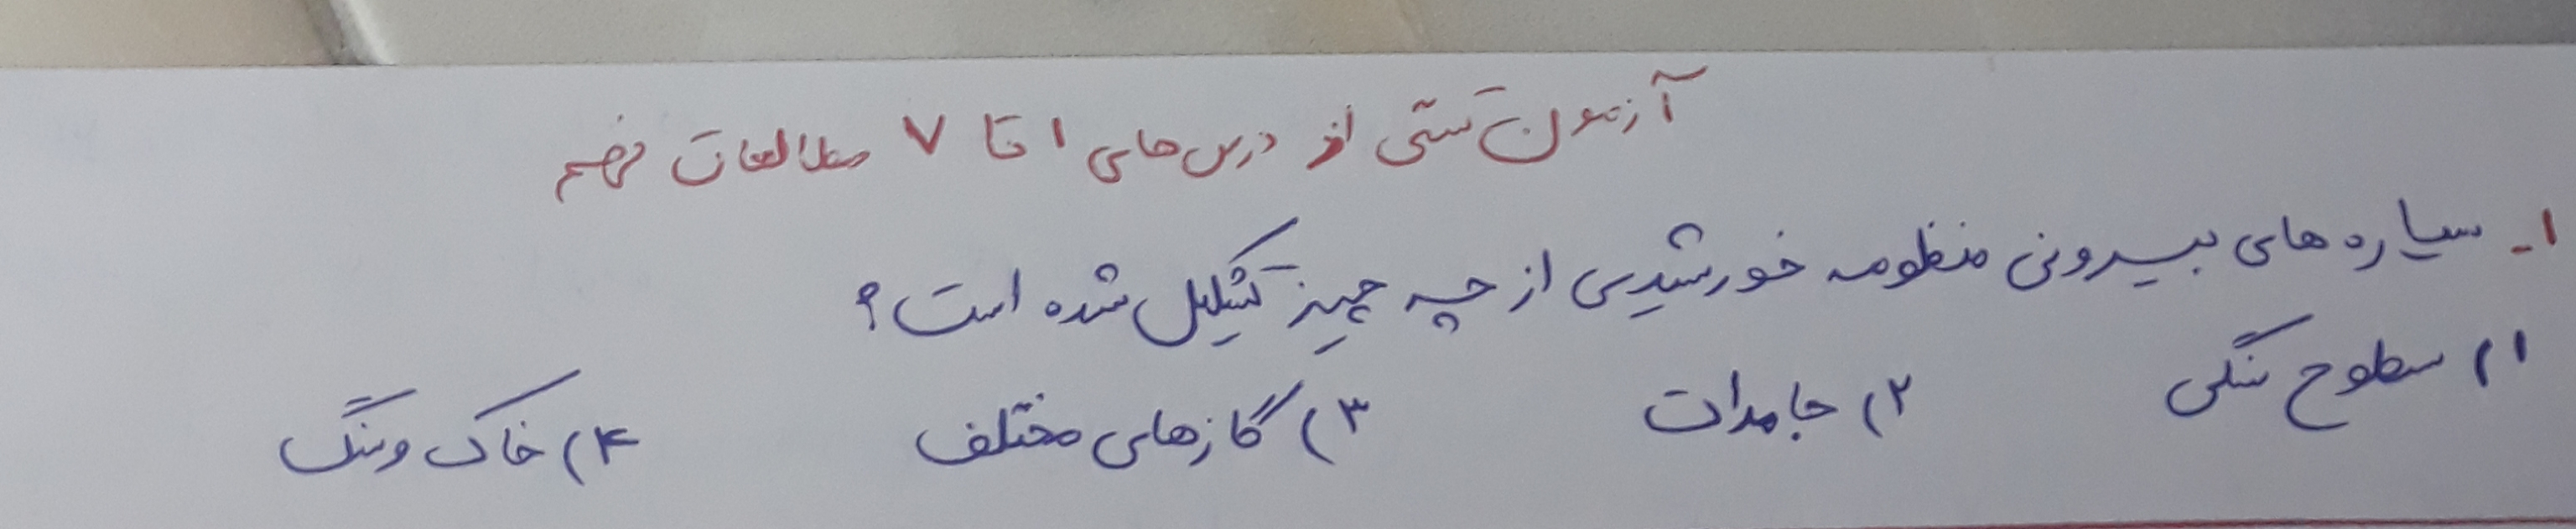 آزمون تستی از درس های ۱ تا ۷ مطالعات نهم
۱- سیاره های بیرونی منظومه خورشیدی از چه چیز تشکیل شده است؟
۱) سطوح سنگی ۲) جامدات ۳) گازهای مختلف ۴) خاک و سنگ